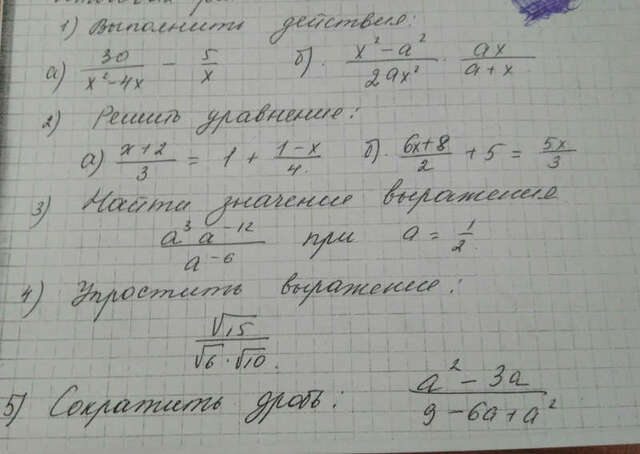 1) Выполнить действия:
а) 30/(x² - 4x) - 5/x б). (x² - a²)/(2ax²) · ax/(a + x)
2) Решить уравнение:
а) (x + 2)/3 = 1 + (1 - x)/4. б). (6x + 8)/2 + 5 = 5x/3
3) Найти значение выражения
a³ a⁻¹²/a⁻⁶ при a = 1/2.
4) Упростить выражение:
√15/(√6 · √10).
5) Сократить дробь: (a² - 3a)/(9 - 6a + a²)